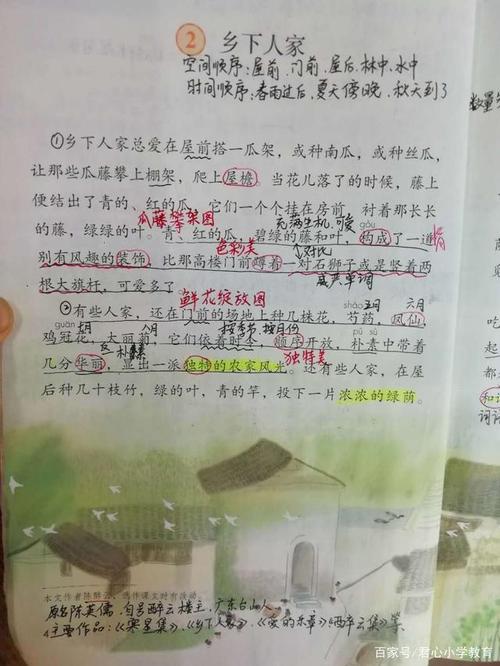 2 乡下人家
空间顺序:屋前、门前、屋后、林中、水中
时间顺序:春雨过后、夏天傍晚、秋天到了
数量
①乡下人家总爱在屋前搭一瓜架,或种南瓜,或种丝瓜,
让那些瓜藤攀上棚架,爬上屋檐。当花儿落了的时候,藤上
便结出了青的、红的瓜,它们一个个挂在房前,衬着那长长
瓜藤攀架图 充满生机、可爱
的藤,绿绿的叶。青、红的瓜,碧绿的藤和叶,构成了一道
gòu
色彩美 对比
别有风趣的装饰,比那高楼门前蹲着一对石狮子或是竖着两
根大旗杆,可爱多了。
鲜花绽放图
sháo 五月 六月
②有些人家,还在门前的场地上种几株花,芍药,凤仙,
guān 八月 按季节、按月份 pǔ sù
鸡冠花,大丽菊,它们依着时令,顺序开放,朴素中带着
反 朴素 独特美
几分华丽,显出一派独特的农家风光。还有些人家,在屋
后种几十枝竹,绿的叶,青的竿,投下一片浓浓的绿荫。
本文作者陈醉云,选作课文时有改动。
原名陈英儒,自号醉云楼主,广东台山人
主要作品:《寒星集》、《乡下人家》、
百家号/君心小学教育